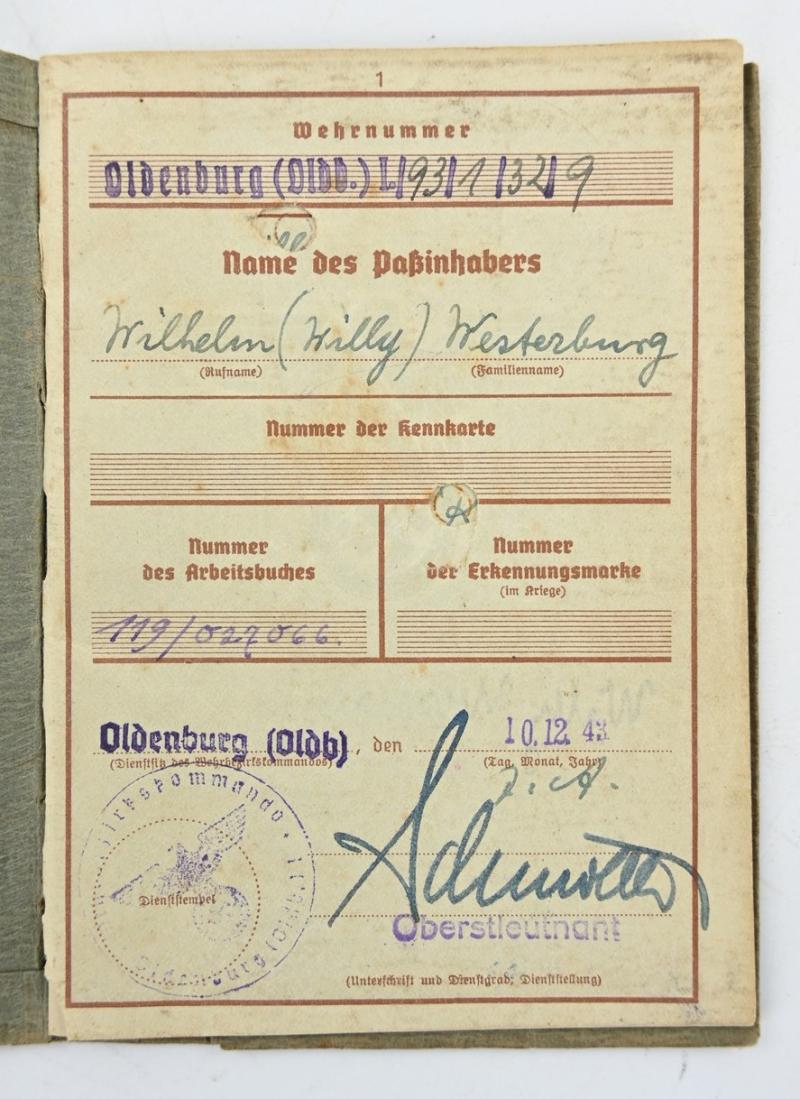 1
Wehrnummer
Oldenburg (Oldb.) L/93/1/32/9
Name des Paßinhabers
Wilhelm (Willy) Westerburg
(Rufname) (Familienname)
Nummer der Kennkarte
Nummer des Arbeitsbuches
119/027066.
Nummer der Erkennungsmarke
(im Kriege)
Oldenburg (Oldb), den 10.12.43
(Dienstsitz des Wehrbezirkskommandos) (Tag, Monat, Jahr)
Dienststempel
Oldenburg (Oldb)
Oberstleutnant
(Unterschrift und Dienstgrad, Dienststellung)